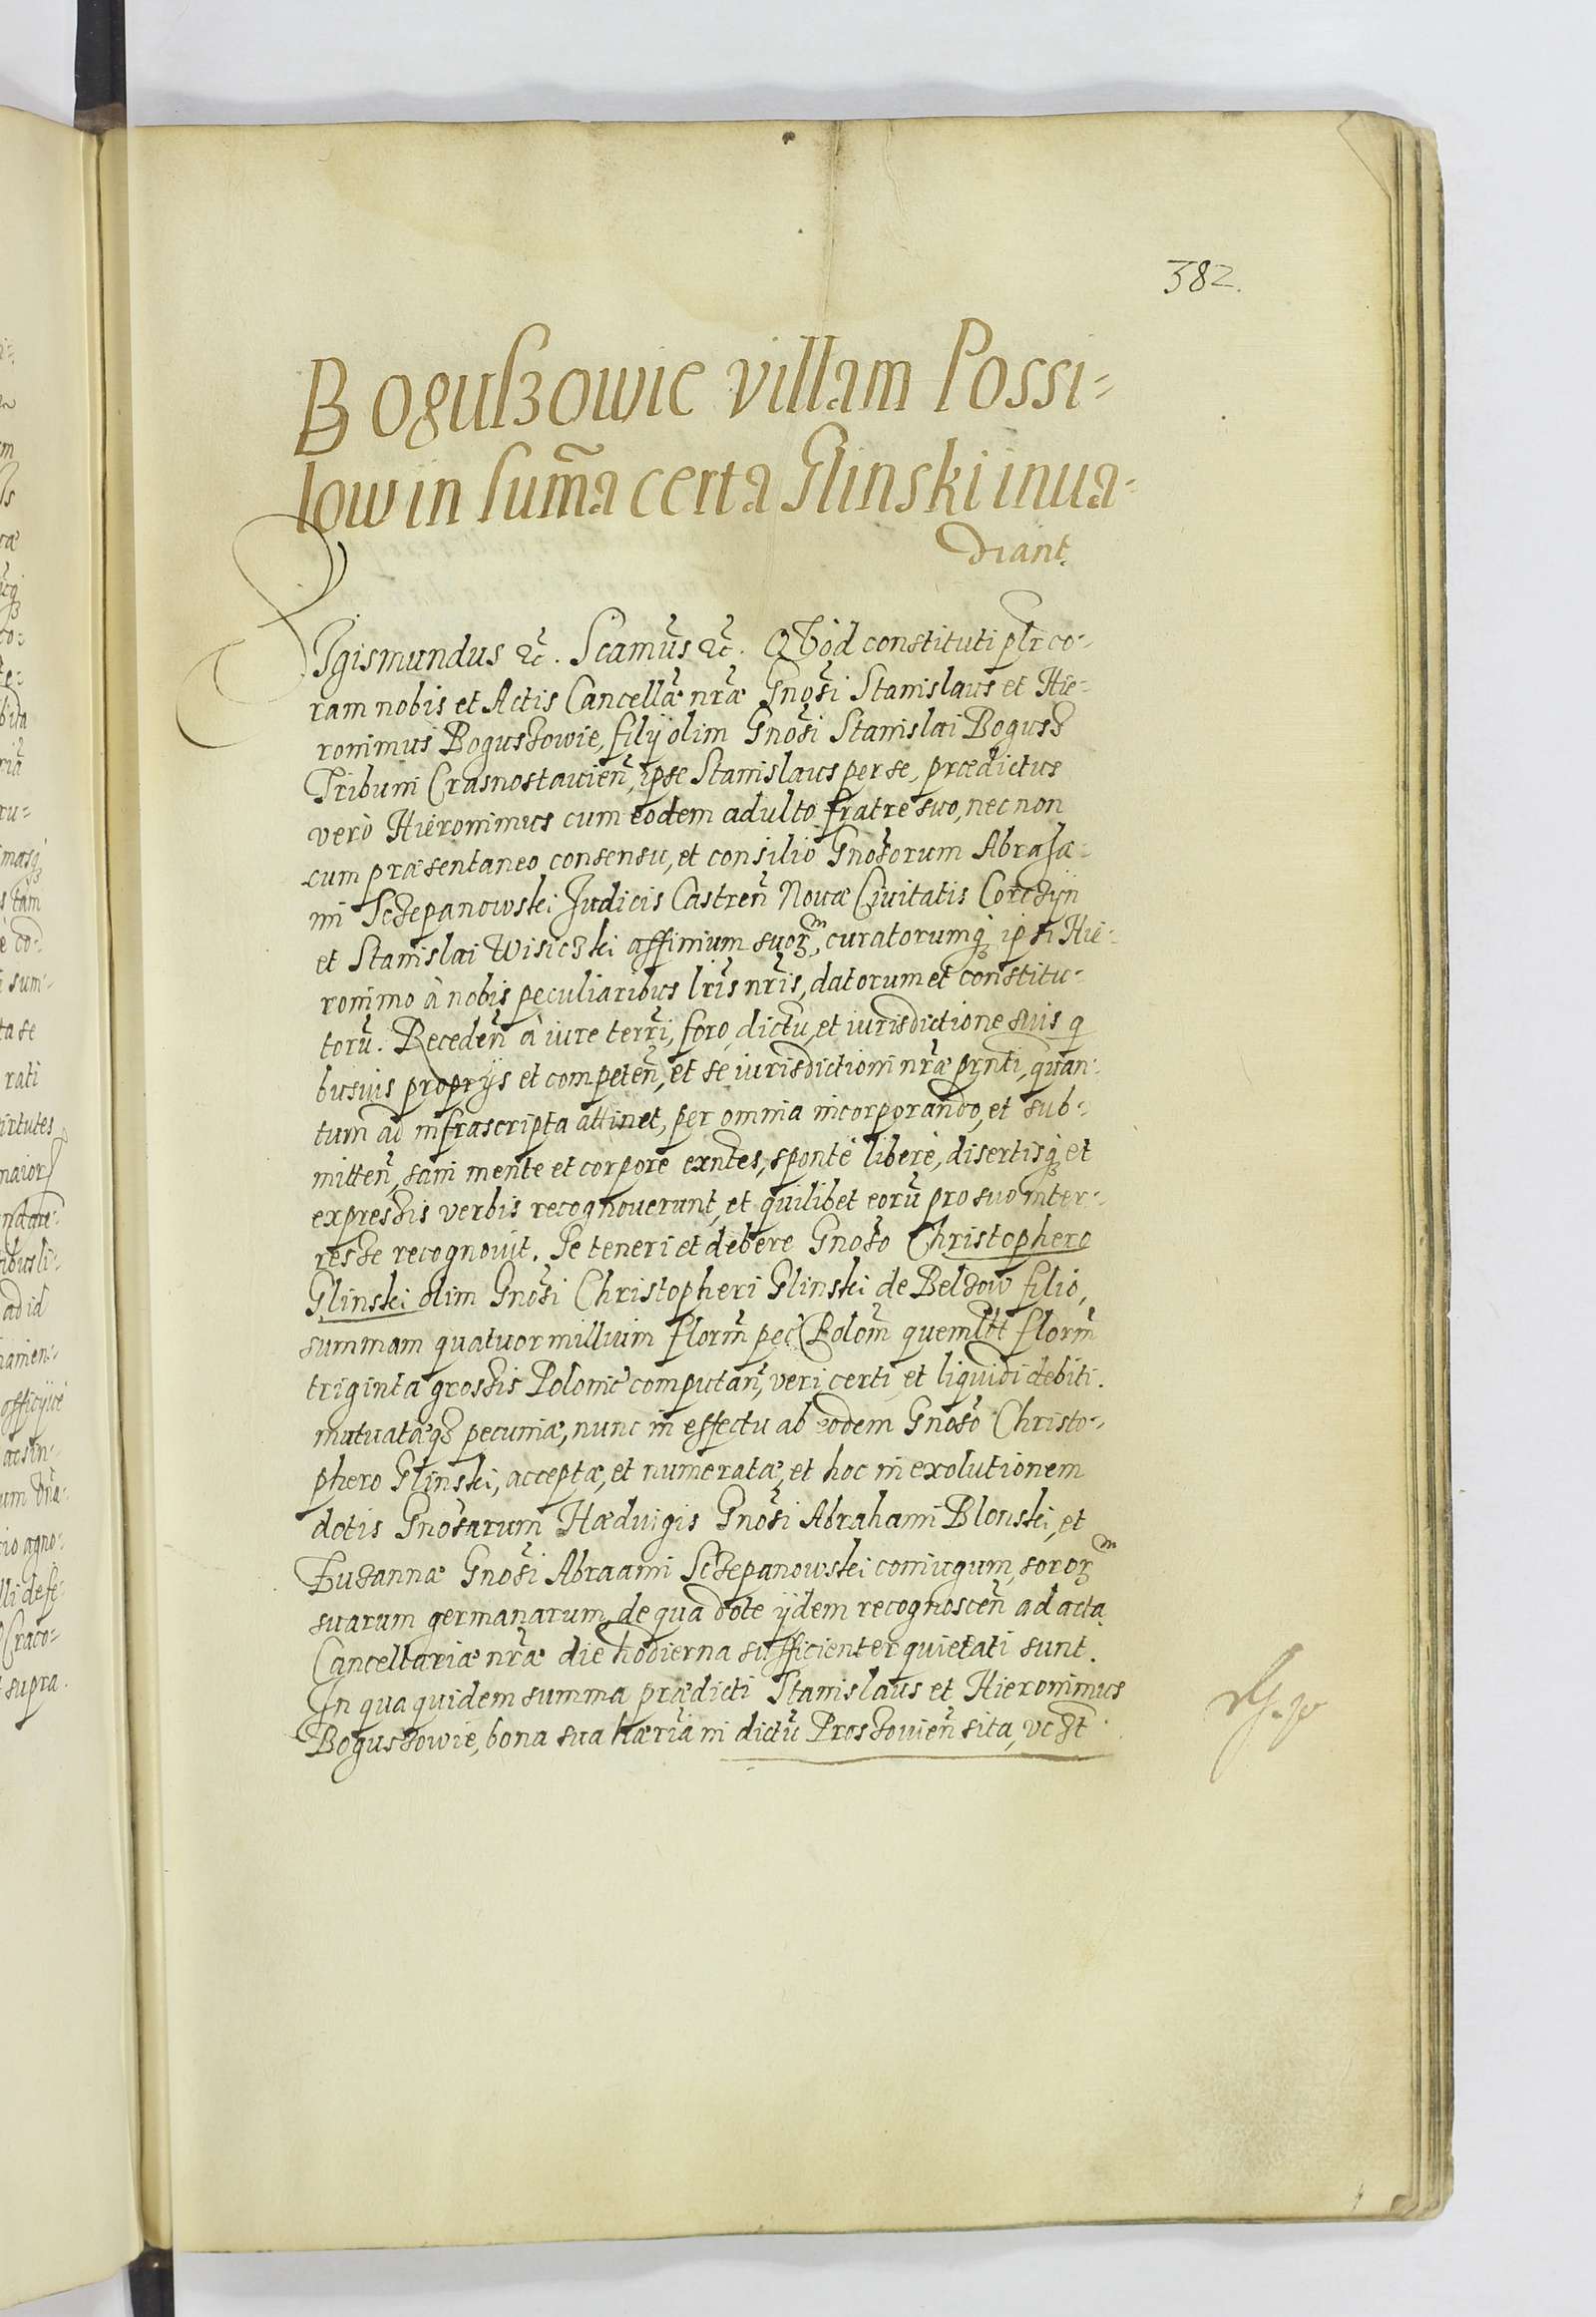 382.
Boguſzowie villam Possi-
low in sum̃a certa Glinski inua-
diant.
Sigismundus &c. Scamus &c. Qvod constituti plr co-
ram nobis et Actis Cancellæ nræ Gnosi Stanislaus et Hie-
ronimus Boguszowie, filij olim Gnosi Stanislai Bogusz
Tribuni Crasnostauien, ipse Stanislaus per se, prædictus
verò Hieronimus cum eodem adulto fratre suo, nec non
cum præsentaneo consensu, et consilio Gnosorum Abraha-
mi Sczepanowski Judicis Castren Nouæ Ciuitatis Corczijn
et Stanislai Wisiczki affinium suorꝫ, curatorumqꝫ ipsi Hie-
ronimo à nobis peculiaribus lris nris, datorum et constitu-
torũ. Receden à iure terri, foro, dictu, et iurisdictione suis q
busuis proprijs et competen, et se iurisdictioni nræ prnti, quan-
tum ad infrascripta attinet, per omnia incorporando, et sub-
mitten, sani mente et corpore exntes, sponte libere, disertisqꝫ et
expressis verbis recognouerunt, et quilibet eorũ pro suo inter-
resse recognouit. Se teneri et debere Gnoso Christophero
Glinski olim Gnosi Christopheri Glinski de Belzow filio,
summam quatuor millium florm pec Polom quemlbt florm
triginta grossis Polonic computan, veri, certi, et liquidi debiti.
mutuatæqꝫ pecuniæ, nunc in effectu ab eodem Gnoso Christo-
phero Glinski, acceptæ, et numeratæ, et hoc in exolutionem
dotis Gnosarum Hæduigis Gnosi Abrahami Blonski, et
Zusannæ Gnosi Abraami Sczepanowski coniugum, sororꝫ
suarum germanarum, de qua dote ijdem recognoscen ad acta
Cancellariæ nræ die hodierna sufficienter quietati sunt.
In qua quidem summa prædicti Stanislaus et Hieronimus
Boguszowie, bona sua hæria in dictu Proszouien sita, vczt